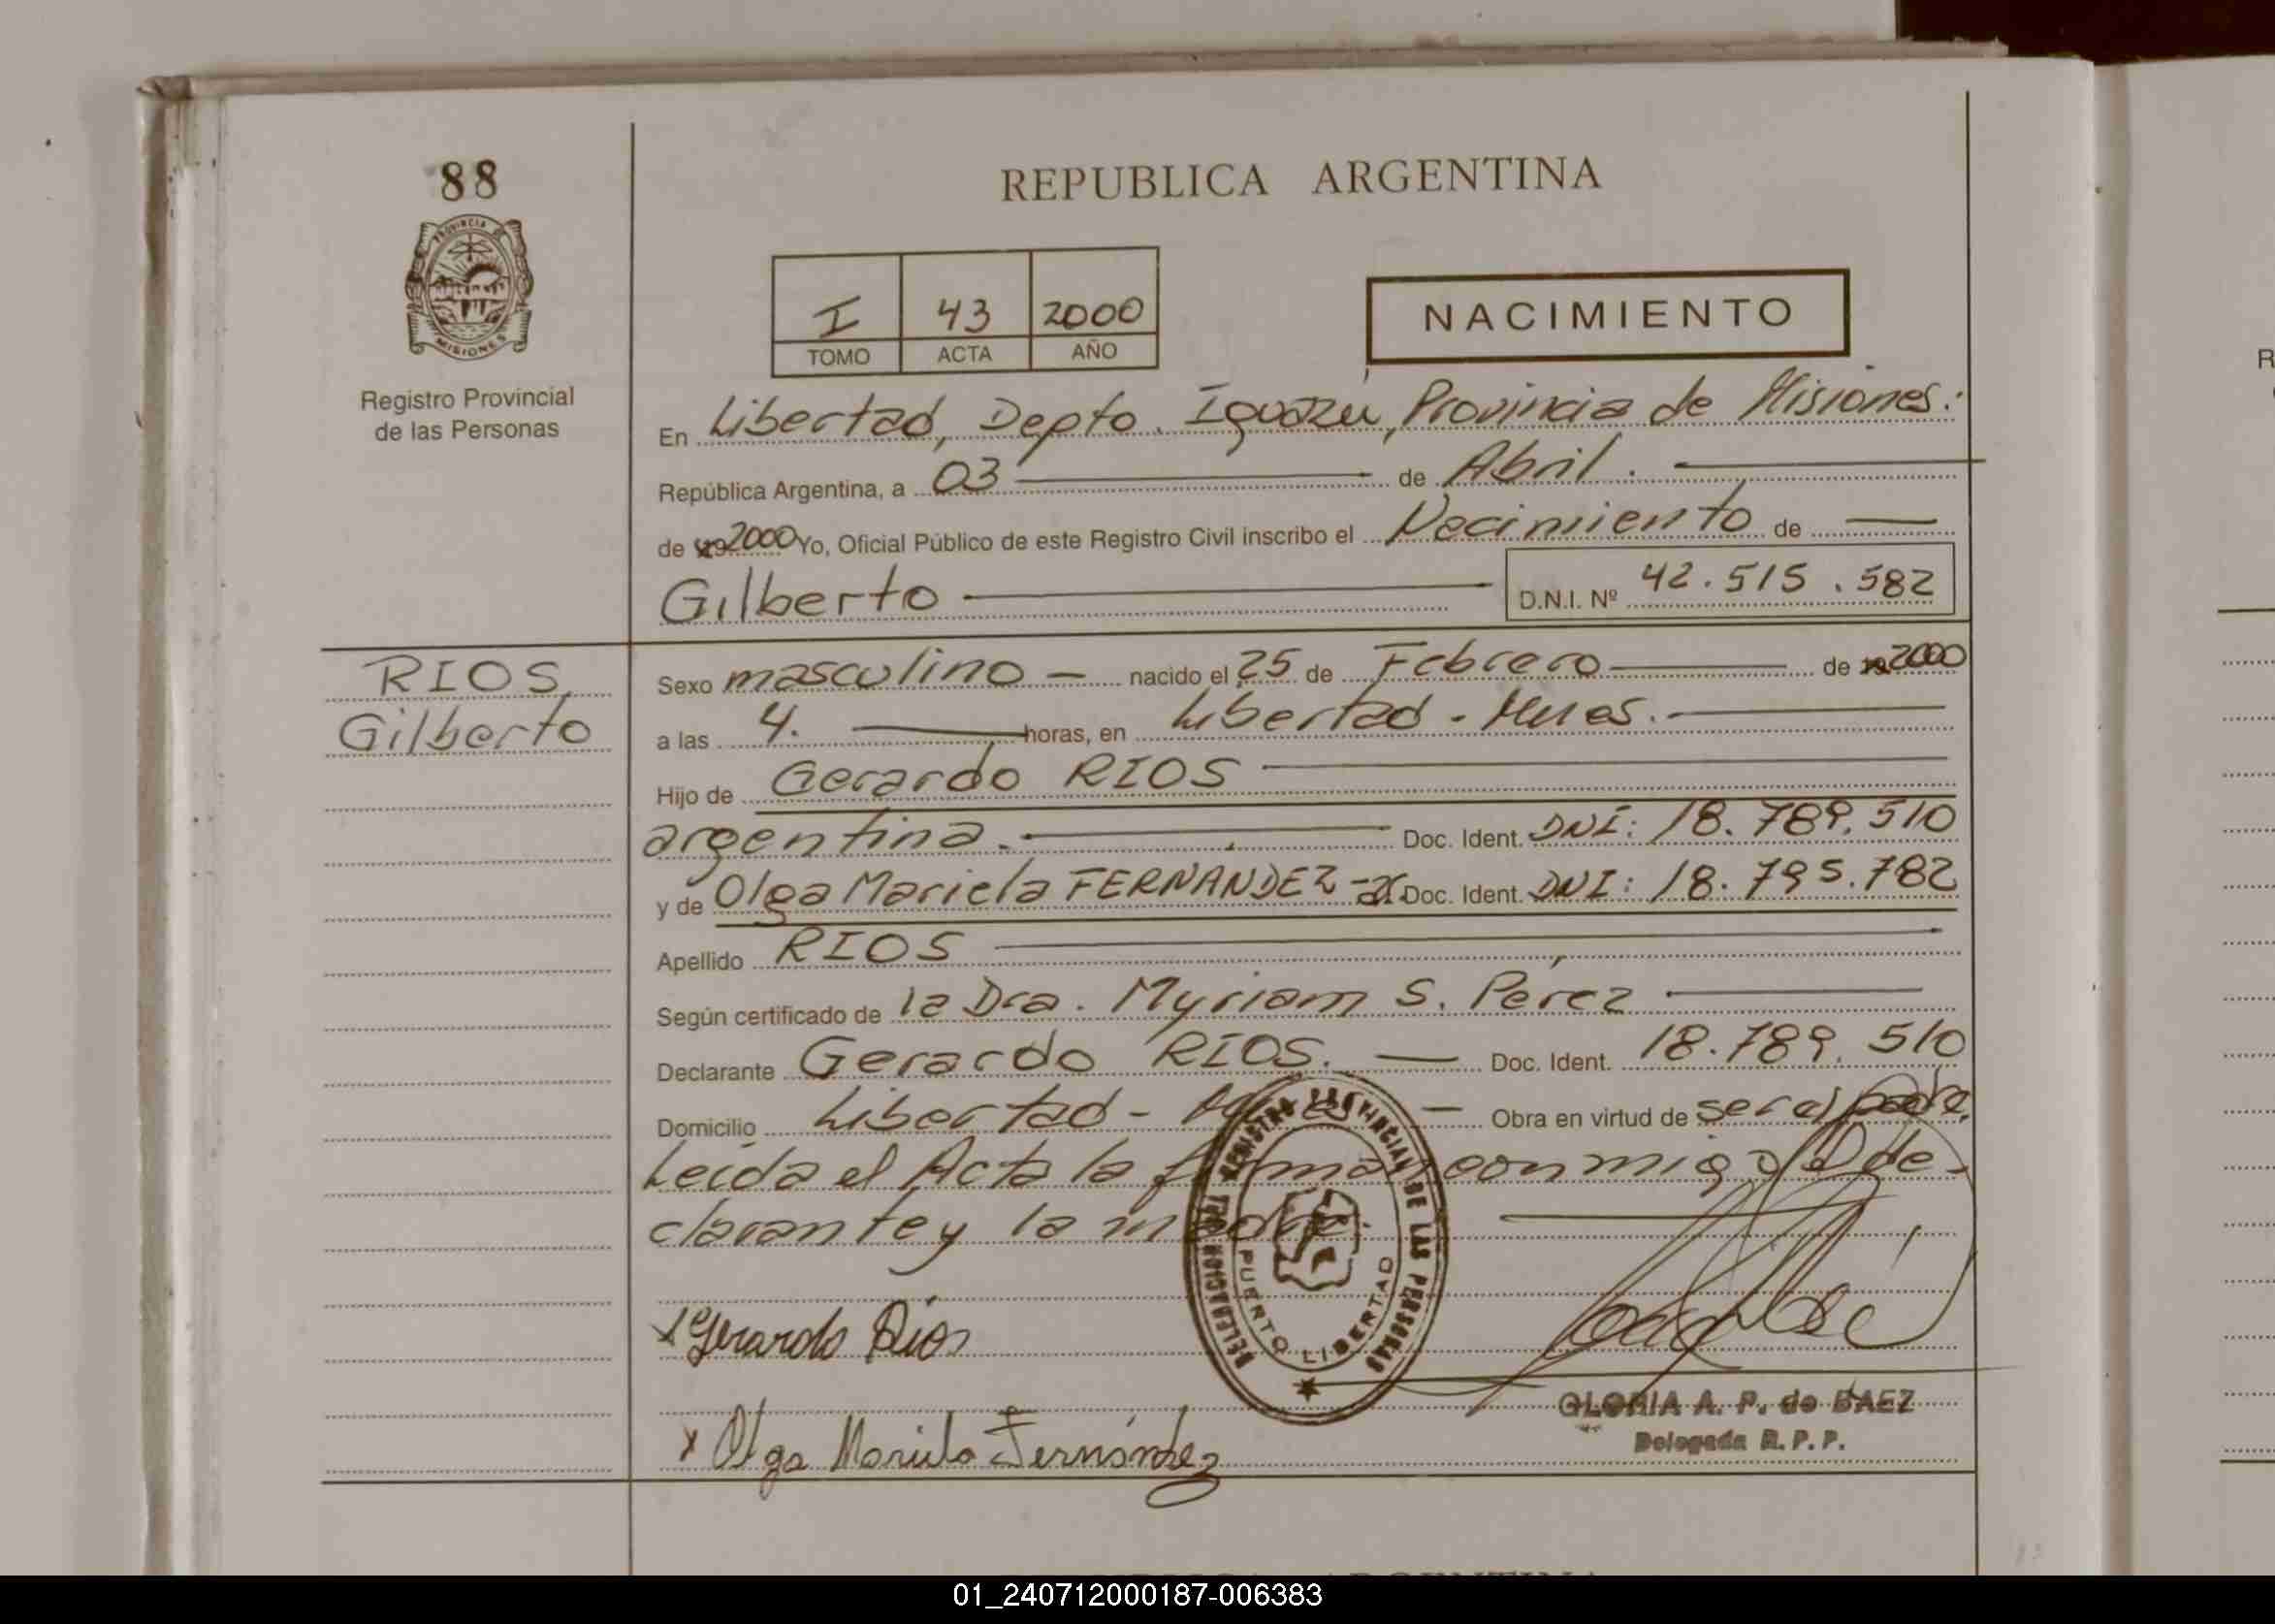 88
PROVINCIA
MISIONES
Registro Provincial
de las Personas
REPUBLICA ARGENTINA
I 43 2000
TOMO ACTA AÑO
NACIMIENTO
En Libertad, Depto. Iguazú, Provincia de Misiones.
República Argentina, a 03 de Abril.
de 2000 Yo, Oficial Público de este Registro Civil inscribo el Nacimiento de
Gilberto D.N.I. Nº 42.515.582
RIOS,
Gilberto
Sexo masculino nacido el 25 de Febrero de 2000
a las 4. horas, en Libertad - Mnes.
Hijo de Gerardo RIOS
argentina. Doc. Ident. DNI: 18.789.510
y de Olga Mariela FERNANDEZ Doc. Ident. DNI: 18.795.782
Apellido RIOS
Según certificado de la Dra. Myriam S. Pérez
Declarante Gerardo RIOS. Doc. Ident. 18.789.510
Domicilio Libertad - Obra en virtud de ser el padre.
Leída el Acta la firman conmigo el de-
clarante y la madre.
REGISTRO PROVINCIAL DE LAS PERSONAS
DELEGACION
PUERTO LIBERTAD
Gerardo Rios
x Olga Mariela Fernández
GLORIA A. P. de BAEZ
Delegada R.P.P.
01_240712000187-006383